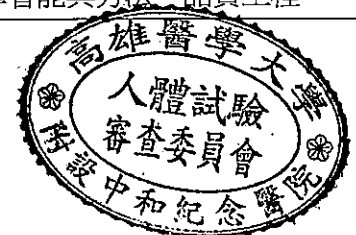 高雄醫學大學
人體試驗
審查委員會
附設中和紀念醫院